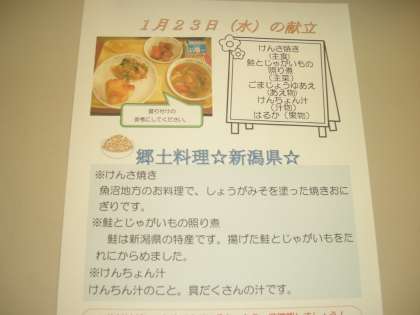 1月23日(水)の献立
けんさ焼き
(主食)
鮭とじゃがいもの
照り煮
(主菜)
ごまじょうゆあえ
(あえ物)
けんちょん汁
(汁物)
はるか(果物)
盛り付けの
参考にしてください。
郷土料理☆新潟県☆
※けんさ焼き
魚沼地方のお料理で、しょうがみそを塗った焼きおに
ぎりです。
※鮭とじゃがいもの照り煮
鮭は新潟県の特産です。揚げた鮭とじゃがいもをた
れにからめました。
※けんちょん汁
けんちん汁のこと。具だくさんの汁です。